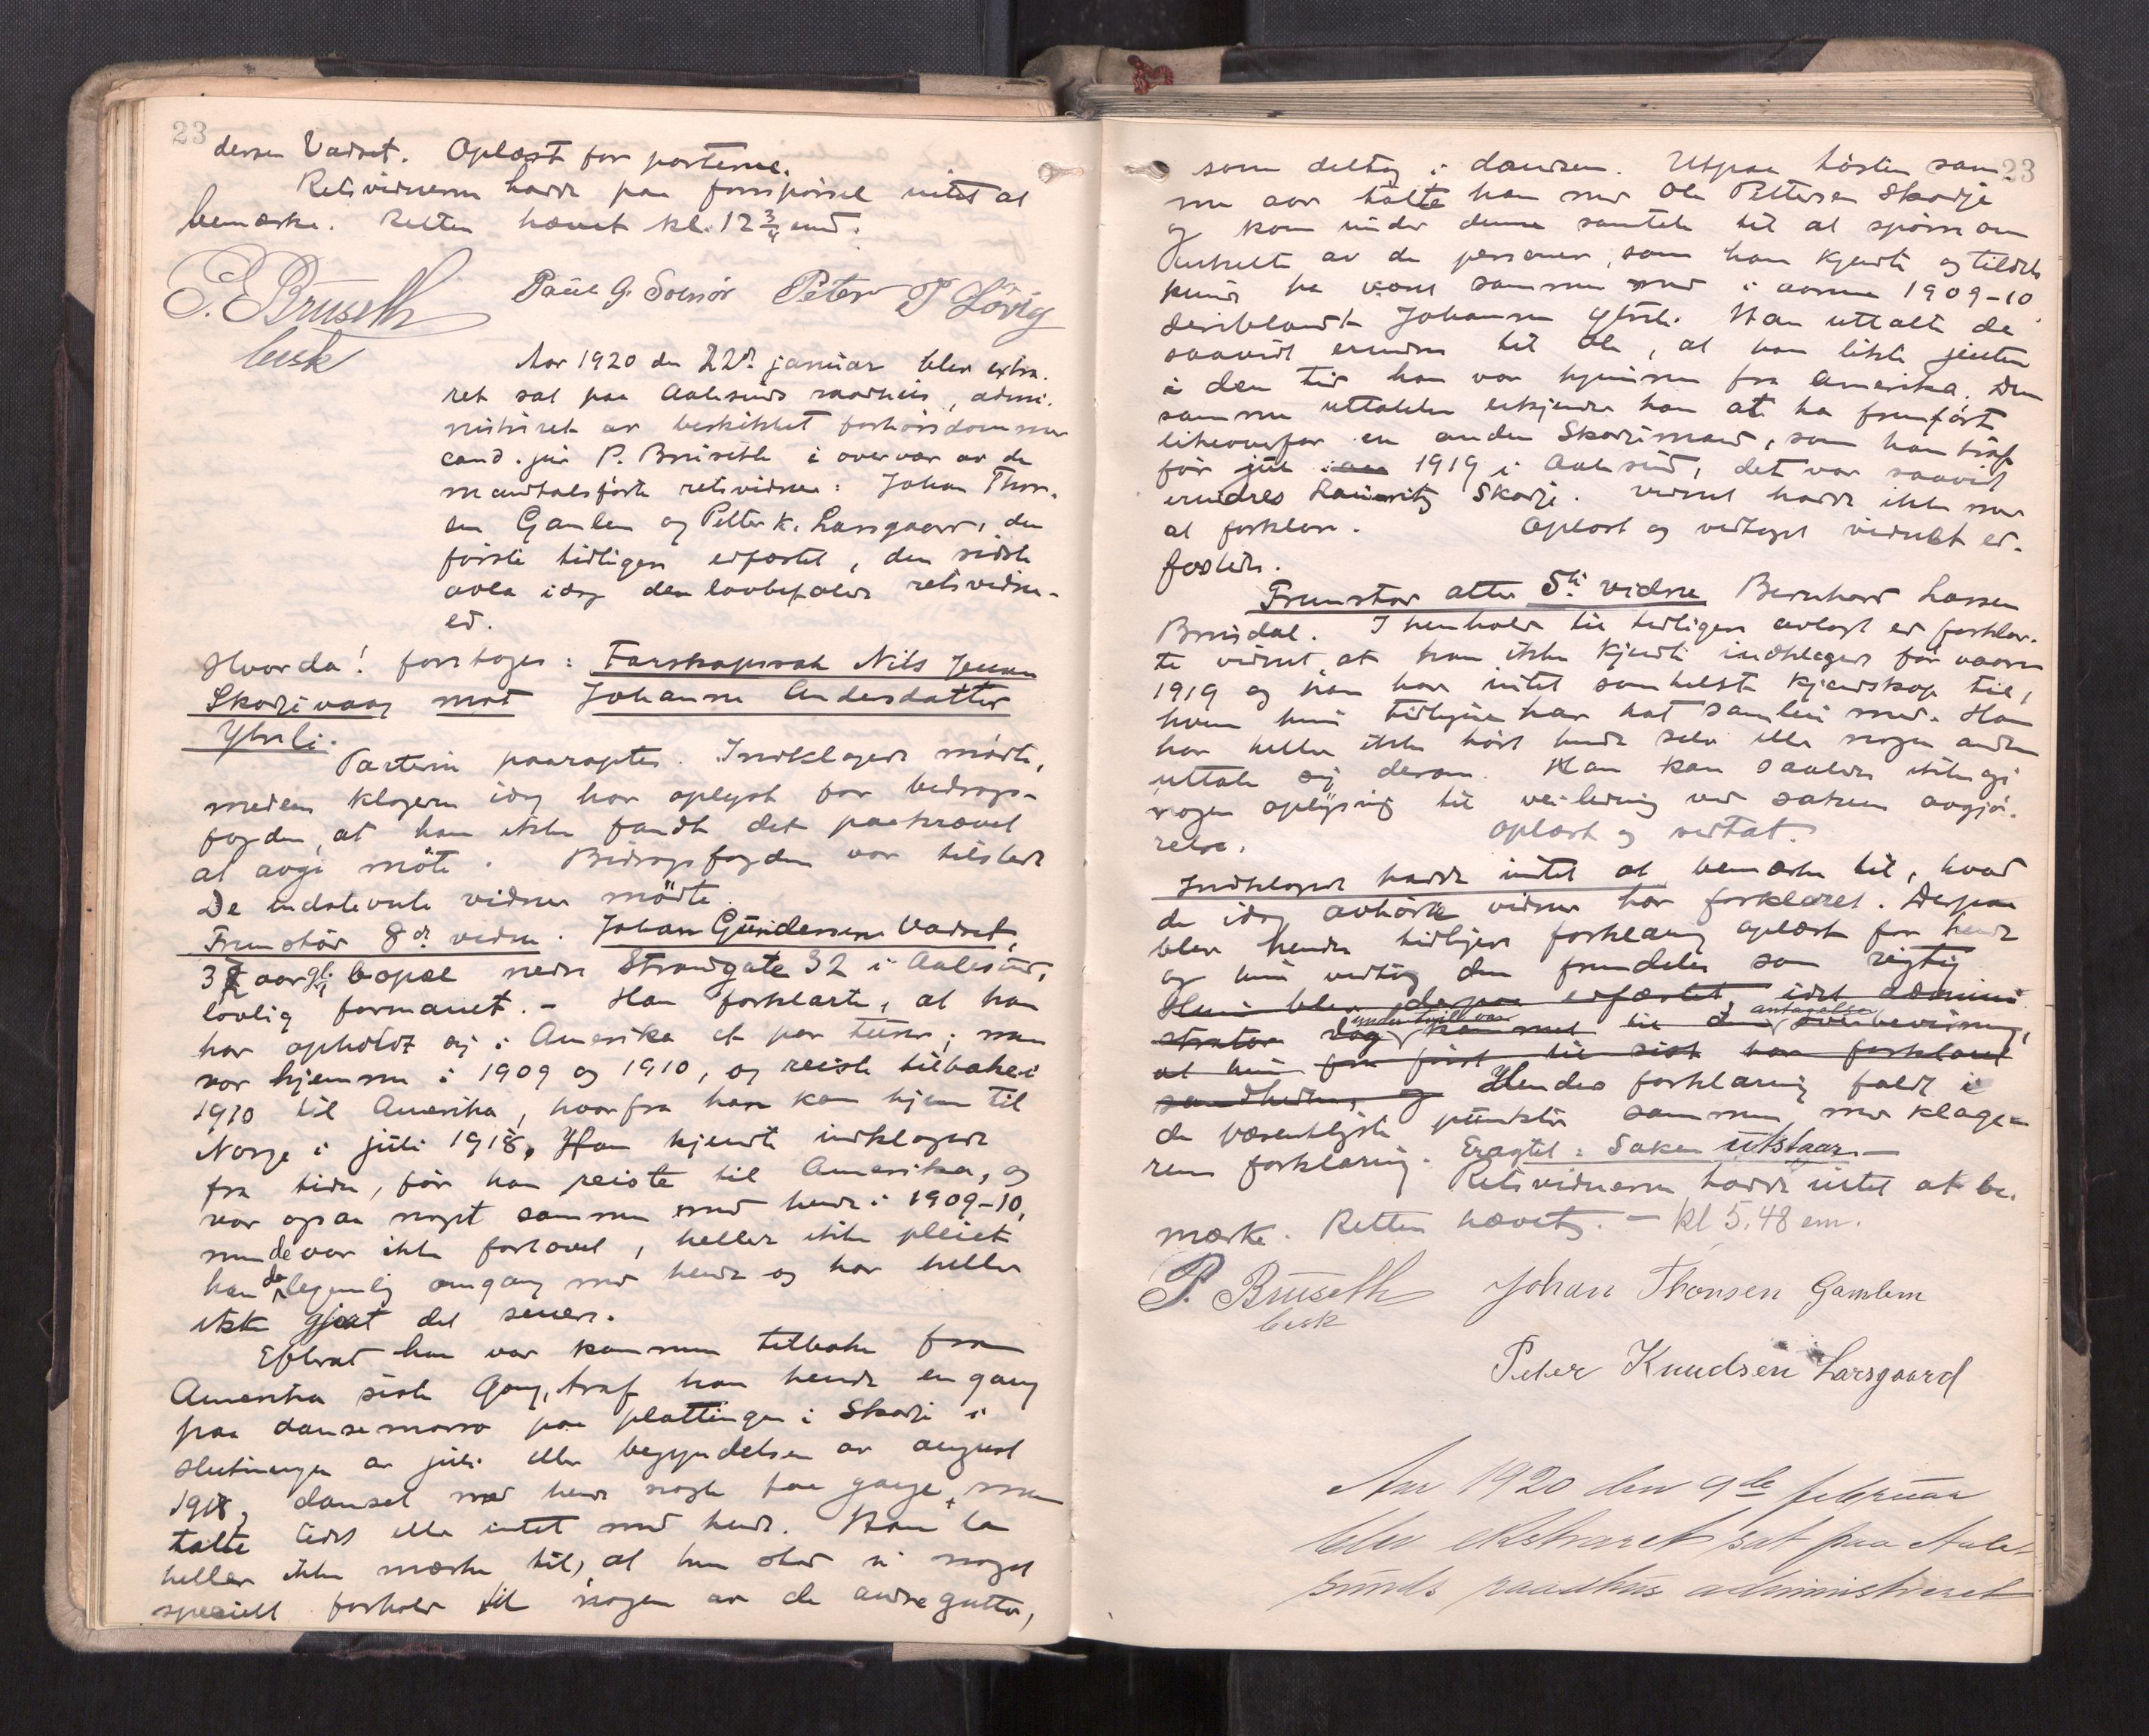 23
dersen Vadset. Oplæst for parterne.
Retsvidnerne hadde paa forespørsel intet at
bemærke. Retten hævet kl. 12 3/4 emd.
P. Bruseth
besk
Paul G. Solnør Peter P Løvig
Aar 1920 den 22de januar blev extra-
ret sat paa Aalesunds raadhus, admi-
nistreret av beskikket forhørsdommer
cand. jur P. Bruseth i overvær av de
mandtalsførte retsvidner: Johan Thor-
sen Gamlem og Petter K. Larsgaard, den
første tidligere edfæstet, den sidste
avla idag den lovbefalede retsvidne-
ed.
Hvorda! foretoges: Farskapssak Nils Jensen
Skodjevaag mot Johanne Andersdatter
Ytreli.
Parterne paaroptes. Indklagede mødte,
medens klageren idag har oplyst for bidrags-
fogden, at han ikke fandt det paakrævet
at avgi møte. Bidragsfogden var tilstede
De indstevnte vidner mødte.
Fremstod 8de vidne. Johan Gundersen Vadset,
37 aar gl. bopæl nedre Strandgate 32 i Aalesund,
lovlig formanet. - Han forklarte, at han
har opholdt sig i Amerika et par turer; men
var hjemme i 1909 og 1910, og reiste tilbake i
1910 til Amerika, hvorfra han kom hjem til
Norge i juli 1918. Han kjendte indklagede
fra tiden, før han reiste til Amerika, og
var ogsaa noget sammen med hende i 1909-10,
men de var ikke forlovet, heller ikke pleiet
han da legemlig omgang med hende og har heller
ikke gjort det senere.
Efterat han var kommen tilbake fra
Amerika siste Gang, traf han hende en gang
paa dansemoro paa plattingen i Skodje i
slutningen av juli eller begyndelsen av august
1918, danset med hende nogle faa gange, men
talte litet eller intet med hende. Han la
heller ikke mærke til, at hun stod i noget
specielt forhold til nogen av de andre gutter,
23
som deltog i dansen. Utpaa høsten sam-
me aar talte han med Ole Pettersen Skodje
og kom under denne samtale til at spørre om
enkelte av de personer, som han kjendte og tildels
hadde været sammen med i aarene 1909-10
deriblandt Johanne Ytreli. Han uttalte da
saavidt erindres til Ole, at han likte jenten
i den tid han var hjemme fra Amerika. Den
samme uttalelse erkjender han at ha fremført
likeoverfor en anden Skodjemand, som han traf
før jul 1919 i Aalesund, det var saavidt
erindres Lauritz Skodje. Vidnet hadde ikke mer
at forklare. Oplæst og vedtaget vidnet ed-
fæstedes.
Fremstod atter 5te vidne Bernhard Larsen
Brusdal. I henhold til tidligere avlagt ed forklar-
te vidnet, at han ikke kjendte indklagede før vaaren
1919 og han har intet somhelst kjendskap til,
hvem hun tidligere har hat samleie med. Han
har heller ikke hørt hende selv eller nogen anden
uttale sig derom. Han kan saaledes ikke gi
nogen oplysning til veiledning ved sakens avgjø-
relse. Oplæst og vedtat.
Indklagede hadde intet at bemærke til, hvad
de idag avhørte vidner har forklaret. Derpaa
blev hendes tidligere forklaring oplæst for hende
og hun vedtog den fremdeles som rigtig
Hun blev derpaa edfæstet, idet admini
strator under tvil var kommet til den antagelse overbevisning,
at hun fra først til sist har forklaret
sandheten, og Hendes forklaring faldt i
de væsentligste punkter sammen med klage-
rens forklaring. Eragtet: Saken utstaar. -
Retsvidnerne hadde intet at be-
mærke. Retten hævet. - kl 5.48 em.
P. Bruseth
besk
Johan Thorsen Gamlem
Peter Knudsen Larsgaard
Aar 1920 den 9de februar
blev ekstraret sat paa Aale-
sunds raadhus administreret